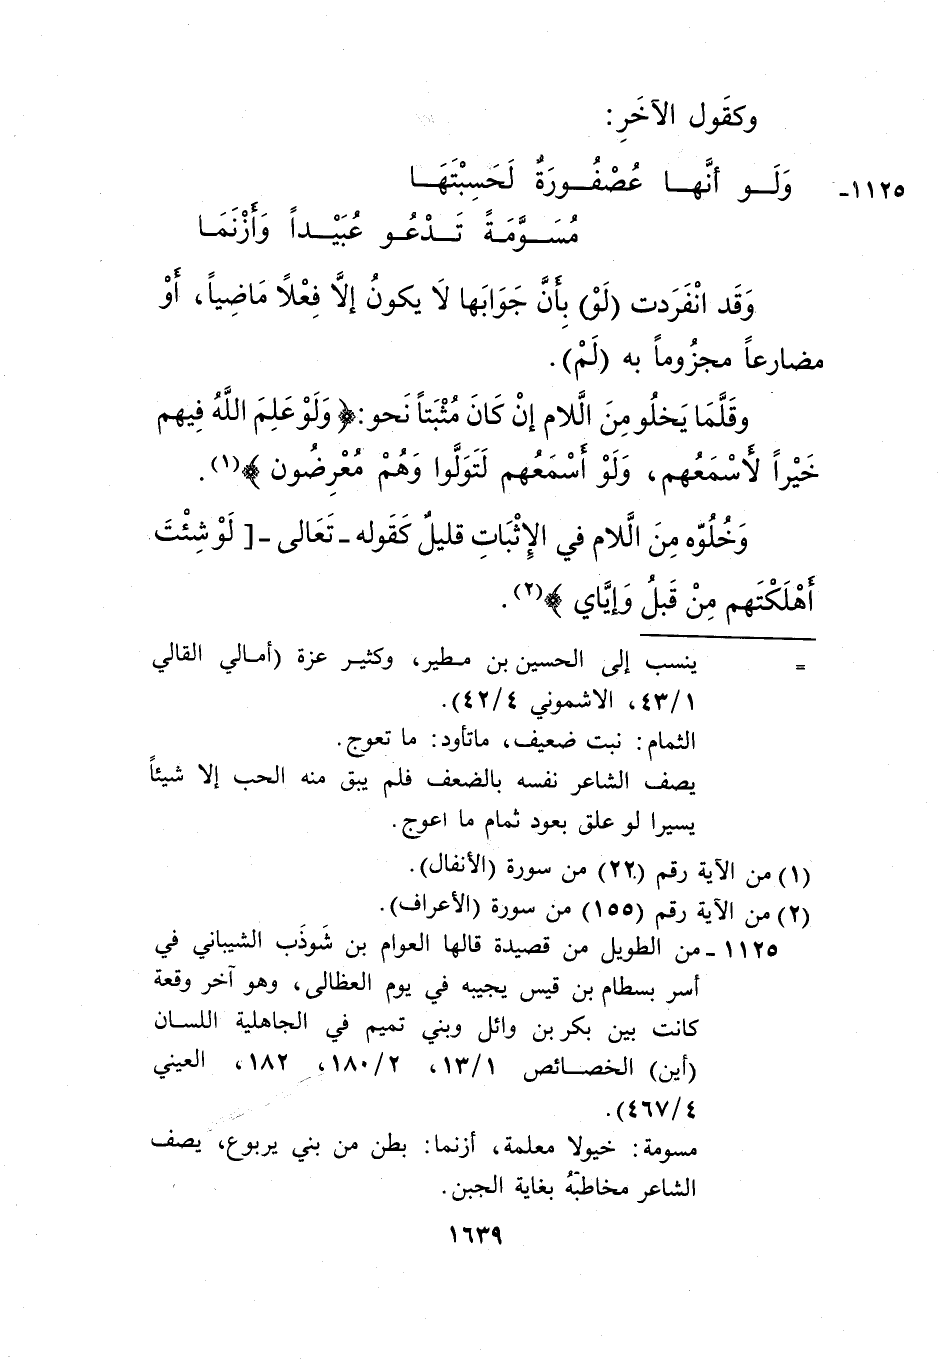 وكقَول الآخَرِ:
١١٢٥ـ وَلَــو أنَّهــا عُصْفُــورَةٌ لَحَسِبْتَهَــا
مُسَــوَّمَةً تَــدْعُــو عُبَيْــداً وَأَزْنَمَا
وَقَد انْفَرَدت (لَوْ) بِأَنَّ جَوَابَها لَا يكونُ إلَّا فِعْلًا مَاضِياً، أَوْ
مضارعاً مجزُوماً به (لَمْ).
وقَلَّمَا يَخلُو مِنَ الَّلام إنْ كَانَ مُثْبَتاً نَحو: ﴿ وَلَوْ عَلِمَ اللَّهُ فِيهم
خَيْراً لأَسْمَعُهم، وَلَوْ أَسْمَعُهم لَتَوَلَّوا وَهُمْ مُعْرِضُون ﴾(١).
وَخُلُوّه مِنَ الَّلام في الإِثْبَاتِ قليلٌ كَقَوله ـ تَعَالى ـ [ لَوْ شِئْتَ
أَهْلَكْتَهم مِنْ قَبلُ وَإِيَّاي ﴾(٢).
= ينسب إلى الحسين بن مطير، وكثير عزة (أمالي القالي
٤٣/١، الاشموني ٤٢/٤).
الثمام: نبت ضعيف، ماتأود: ما تعوج.
يصف الشاعر نفسه بالضعف فلم يبق منه الحب إلا شيئاً
يسيرا لو علق بعود ثمام ما اعوج.
(١) من الآية رقم (٢٢) من سورة (الأنفال).
(٢) من الآية رقم (١٥٥) من سورة (الأعراف).
١١٢٥ ـ من الطويل من قصيدة قالها العوام بن شَوذَب الشيباني في
أسر بسطام بن قيس يجيبه في يوم العظالى، وهو آخر وقعة
كانت بين بكر بن وائل وبني تميم في الجاهلية اللسان
(أين) الخصائص ١٣/١، ١٨٠/٢، ١٨٢، العيني
٤٦٧/٤).
مسومة: خيولا معلمة، أزنما: بطن من بني يربوع، يصف
الشاعر مخاطبّهُ بغاية الجبن.
١٦٣٩